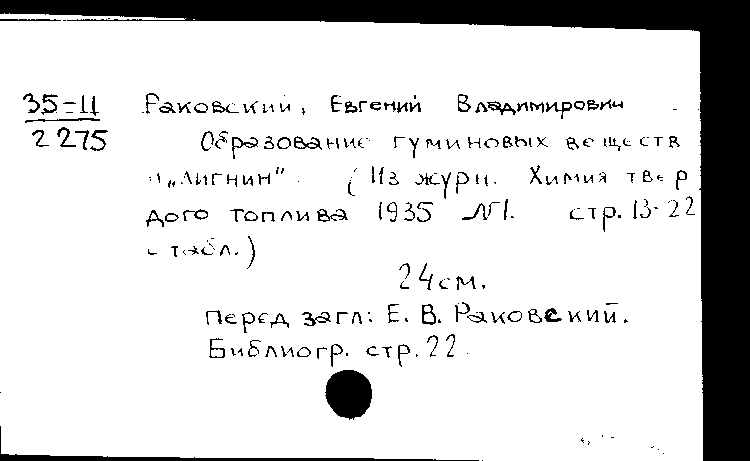 35-11 Раковский, Евгений Владимирович
2275 Образование гуминовых веществ
и „лигнин". (Из журн. Химия твер
дого топлива 1935 №1. стр. 13-22
с табл.)
24 см.
Перед загл: Е. В. Раковский.
Библиогр. стр. 22.